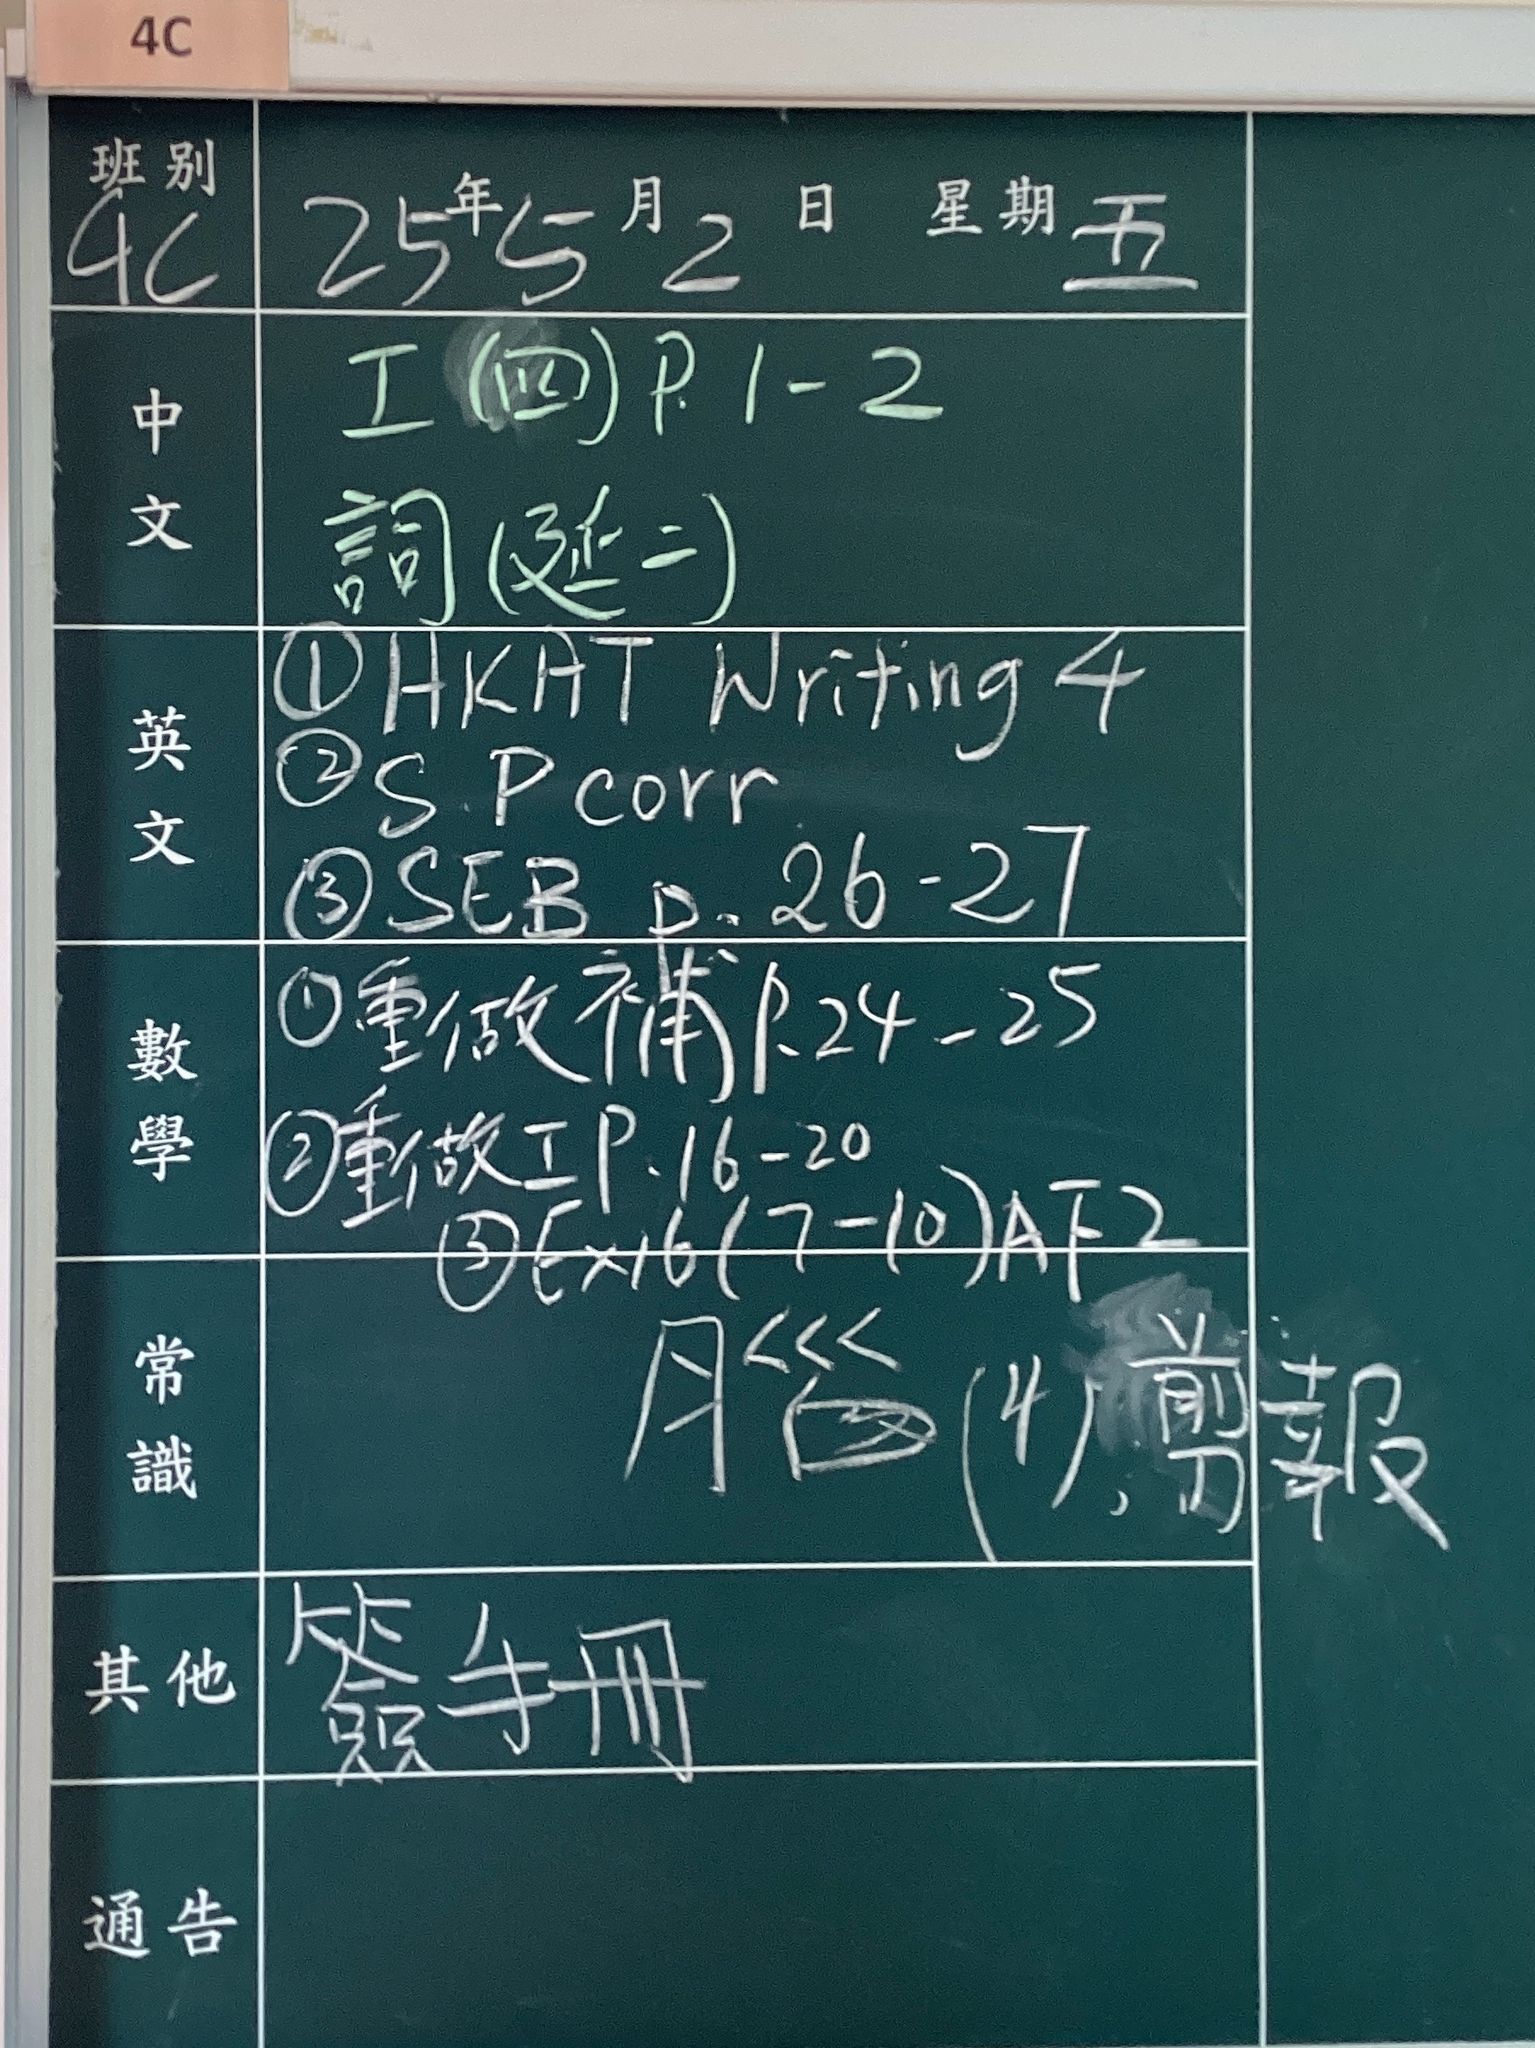 4C
班別 年 月 日 星期
4C 25 5 2 五
中文
工(四)P.1-2
詞(延二)
英文
①HKAT Writing 4
②S.P corr
③SEB p. 26-27
數學
①重做補P.24-25
②重做工P.16-20
③Ex16(7-10)AF2
常識
腦(4),剪報
其他
簽手冊
通告